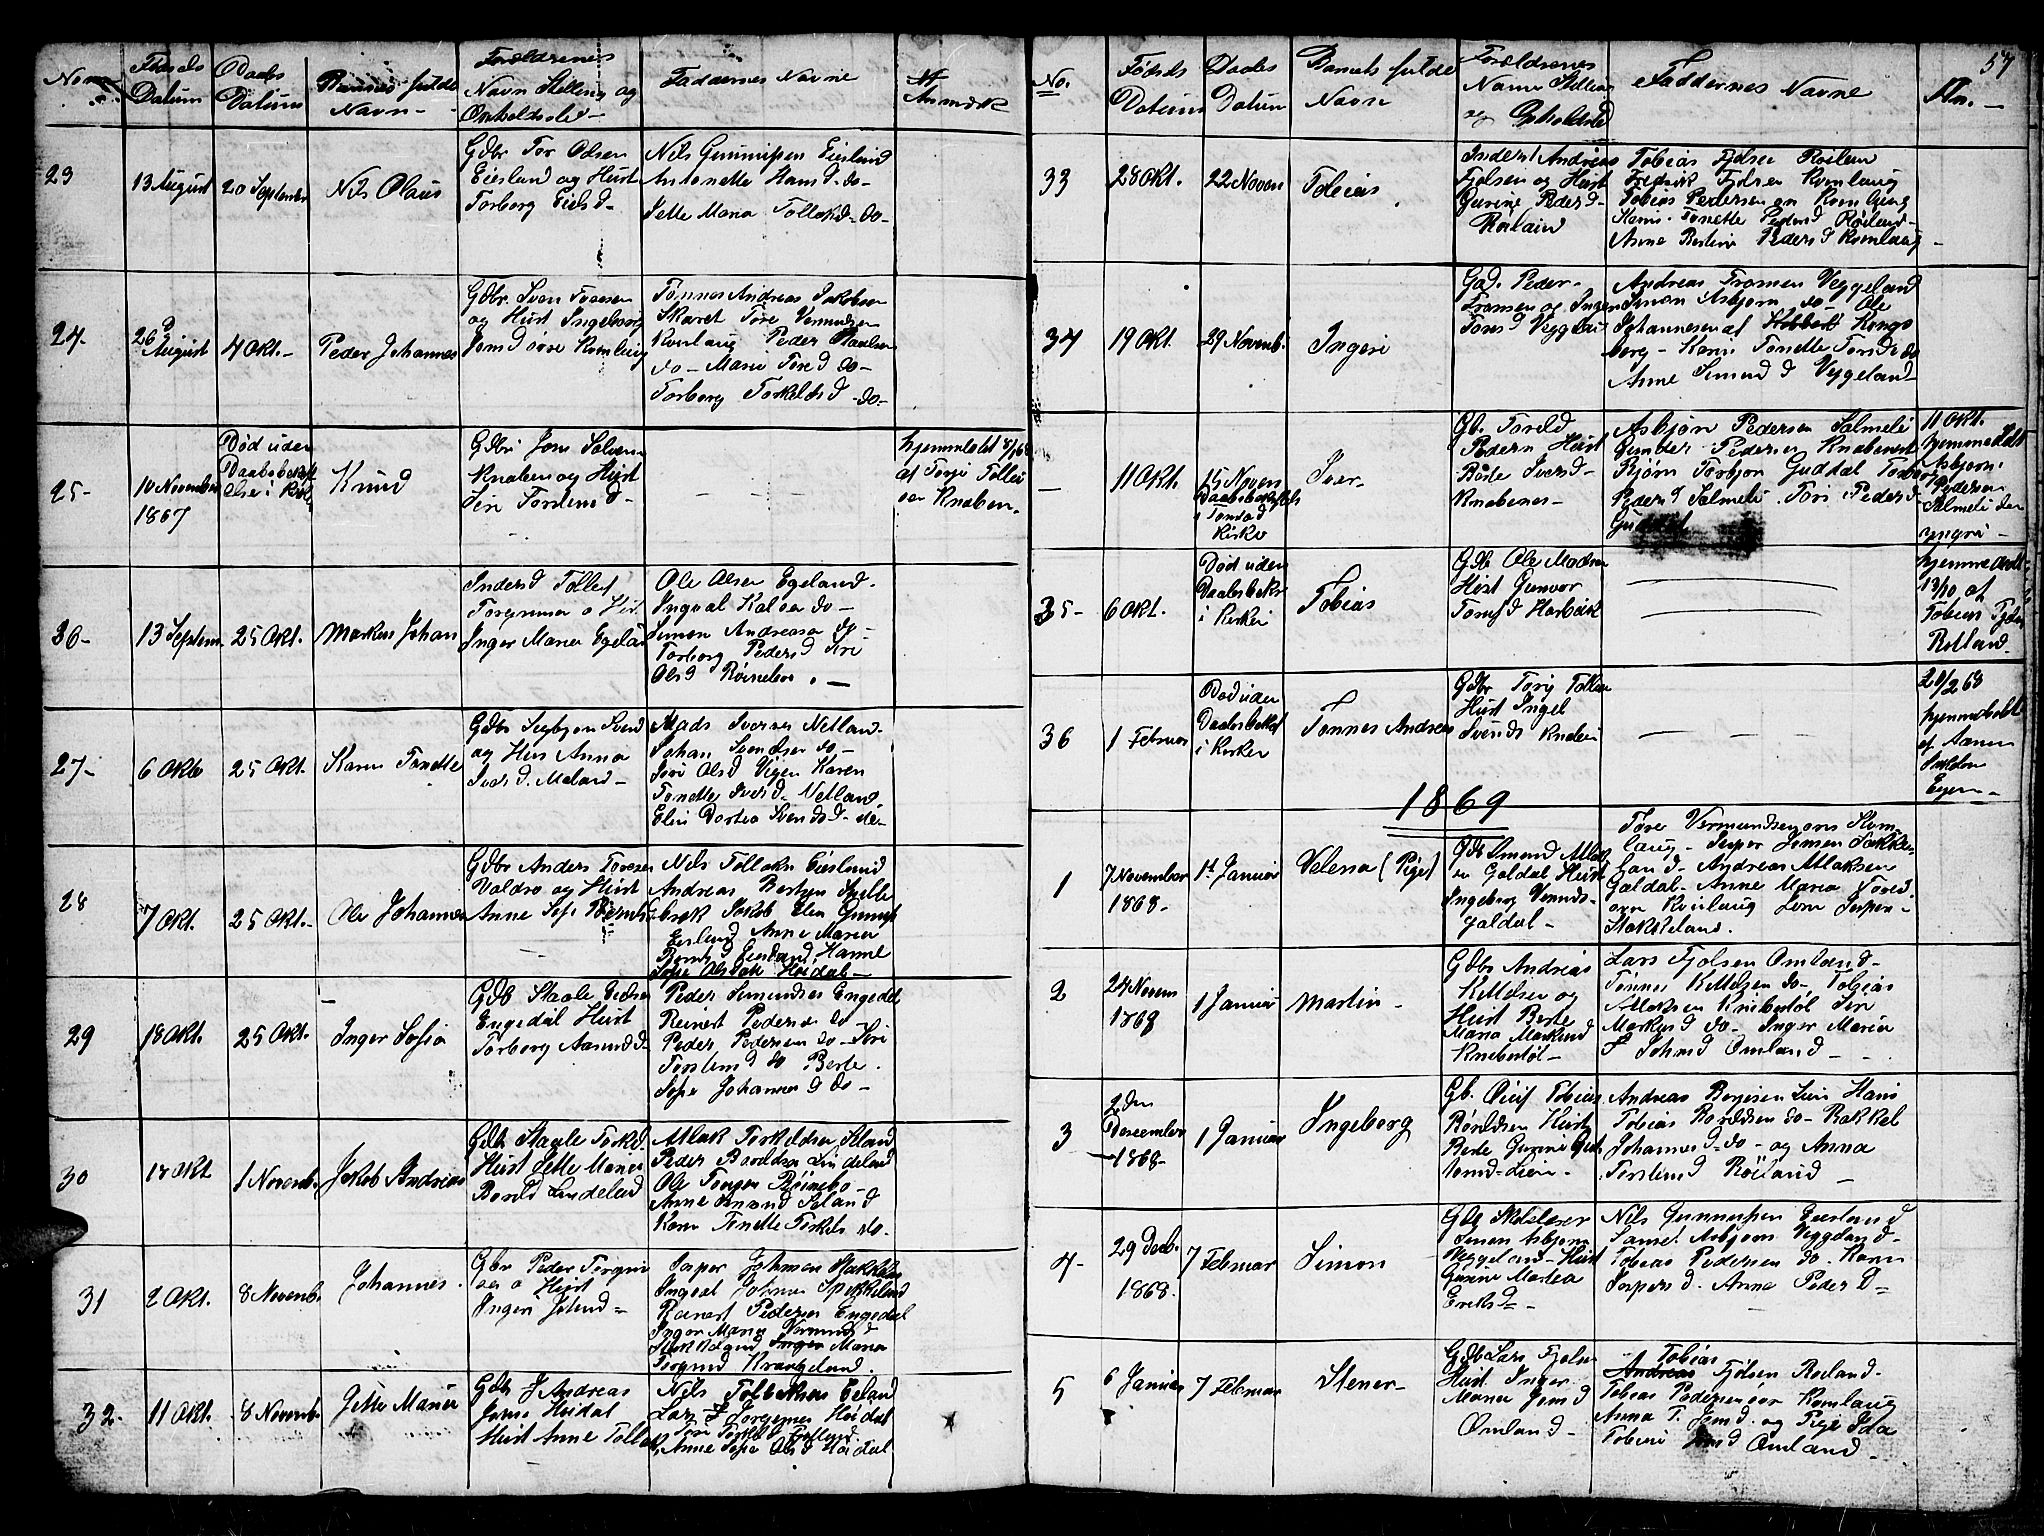 No
Føds
Datum
Daabs
Datum
Barnets fulde
Navn
Forældrenes
Navn Stilling og
Opholdssted
Faddernes Navne
Anmærk
23
13 August
20 September
Nils Olaus
Gdbr Tor Olsen
Eiesland og Hust
Torborg Eielsd
Nils Gunnufsen Eiesland
Antonette Hansd do
Jette Maria Tollaksd do
24
26 August
4 Okt.
Peder Johannes
Gdbr. Sven Toresen
og Hust Ingeborg
Jonsd øvre Komlaug
Tønnes Andreas Jakobsen
Skaret Tore Vermunsen
Romlaug Peder Paulsen
do Marie Tored do
Torborg Torkelds d do
25
10 November
1867
Død uden
Daabsbekræft
else i Kirk
Knud
Gdbr Jon Salvesen
Knaben og Hust
Siri Torstensd
hjemmedøbt 8/1 68
af Torje Tollei
sen Knaben
26
13 Septem
25 Okt.
Markus Johan
Inders d Tollest
Torgrimsen o Hus
Inger Maria Egeland
Ole Olsen Egeland
Ingval Kalsen do
Simon Andreasen do
Torborg Peders d Siri
Olsd Røinebo
27
6 Okto
25 Okt.
Karen Tonette
Gdbr Segbjørn Svend
og Hus Anna
Ivers d. Meland
Mads Iversen Netland
Johan Svendsen do
Siri Olsd Vegen Karen
Tonette Ivers d Netland
Elen Dortea Svends d do
28
7 Okt.
25 Okt.
Ole Johannes
Gdbr Anders Toresen
Valdro og Hust
Anne Sofie Berntsd
Nils Tollaks Eiesland
Andreas Bertsen
Jakob Elen Gunnuf
Eesland Anne Maria
Bernts d Eiesland Hanne
Sofie Olsdat Høidal
29
18 Okt.
25 Okt.
Inger Sofia
Gdb Staale Peders
Engedal Hust
Torborg Aanund d
Peder Simundsen Engedal
Reinert Peders do
Peder Pedersen do Siri
Torstensd do Berte
Sofie Johannes d do
30
18 Okt
1 Novemb.
Jakob Andreas
Gdb Staale Torkelds
Hust Jette Maria
Bareld Lindeland
Atlak Torkeldsen Seland
Peder Bareldsen Lindeland
Ole Tergsen Røinebo
Anne Aanund d Seland
Karen Tonette Torkels do
31
2 Okt.
8 Novemb.
Johannes
Gbr Peder Torgrim
sen o Hust
Inger Jelund
Jasper Johnsen Stakkeland
Ingvat Johnsen Stakkeland
Reinert Pedersen Engedal
Inger Maria Vermunds d
Stakkeland Inger Maria
Torgrimd Kvangeland
32.
11 Okt.
8 Novemb
Jette Maria
Gdb J Andreas
Jørns Høidal
Hust Anne Tollak
Nils Tollaksen Eieland
Lars J Jørgensen Høidal
Tore Torkeld Fjotland
Anne Sofie Olsd Høidal
57
No.
Føds
Datum
Daabs
Datum
Barnets fulde
Navn
Forældrenes
Navne Stilling
og Opholdsted
Faddernes Navne
An.
33
28 Okt.
22 Noven
Tobias
Inderst Andreas
Fjelsen og Hust
Gurine Pedersd
Røiland
Tobias Fjelsen Roiland
Fredrik Fjelsen Komlaug
Tobias Pedersen øn Komlaug
Karen Tonette Pedersd Røiland
Anne Bertine Peders d Komlaug
34
19 Okt.
29 Novemb.
Ingeri
Gad. Peder
Fronsen og Inger
Tores d Veggeland
Andreas Fronsen Veggeland
Simon Asbjørn do Ole
Johannesen af Kongs
berg Karen Tonette Torsd do
Anne Simund d Veggeland
11 Okt.
15 Noven
Daabsbekræftels
i Tonstad
Kirke
Iver
Gb. Toreld
Pedersn Hust
Berte Iversd
Knabenes
Asbjørn Pedersen Salmeli
Gunder Pedersen Knabenest
Bjørn Torbjøn Guddal Torborg
Peders d Salmeli Tori Peders d
Guddal
11 Okt.
hjemmedøbt
Asbjørn
Pedersen
Salmeli den
yngre
35
6 Okt.
Død uden
Daabsbekr
i Kirken
Tobias
Gdb Ole Madsen
Hust Gunvor
Tomsd Harbak
hjemmedøbt
13/10 af
Tobias
Rotland
36
1 Februar
Død uden
Daabsbekræf
i Kirken
Tønnes Andreas
Gdbr Torj Tollei
Hust Ingel
Svends Knaben
20/2 68
hjemmedøbt
af Aanen
Egen
1869
1
7 November
1868
1st Januar
Velena (Pige)
Gdb Omund Atlak
sn Galdal Hust
Ingeborg Vemunds
Galdal
Tore Vermundsen øvre Kom
laug Jesper Jonsen Stakke
land Andreas Atlaksen
Galdal Anne Maria Tored
øvre Komlaug Lene Jespers
Stakkeland.
2
24 Novem
1868
1 Januar
Martin
Gdbr Andreas
Ketelsen og
Hust Berte
Maria Markusd
Knibestøl
Lars Fjelsen Omland
Tønnes Kittelsen do Tobias
Atlaksen Knibestøl Siri
Markusd do Inger Maria
Johnsd Omland
3
2den
Desember
1868
1 Januar
Ingeborg
Gb. Tobias
Bareldsen Hust
Berte
Lien
Andreas Bergesen Lien Hans
Tobias Bareldsen do Rakkel
Johannes d do og Anna
Torstens d Røiland
4
29 Decb.
1868.
7 Februar
Simon
Gdb Skolelærer
Simon Asbjørns
Veggeland Hust
Gurine Martea
Eriks d
Nils Gunnufsen Eiesland
Samel Asbjørn Veggland
Tobias Pedersen do Karen
Jespers d. Anne Peder d
5
6 Januar
7 Februar
Stener
Gdb Lars Fjelsn
Hust Inger
Maria Jonsd
Omland
Tobias
Andreas Fjelsen Roiland
Tobias Pedersen øvr Komlaug
Anna T. Jonsd og Pige Ida
Tobine Jonsd Omland